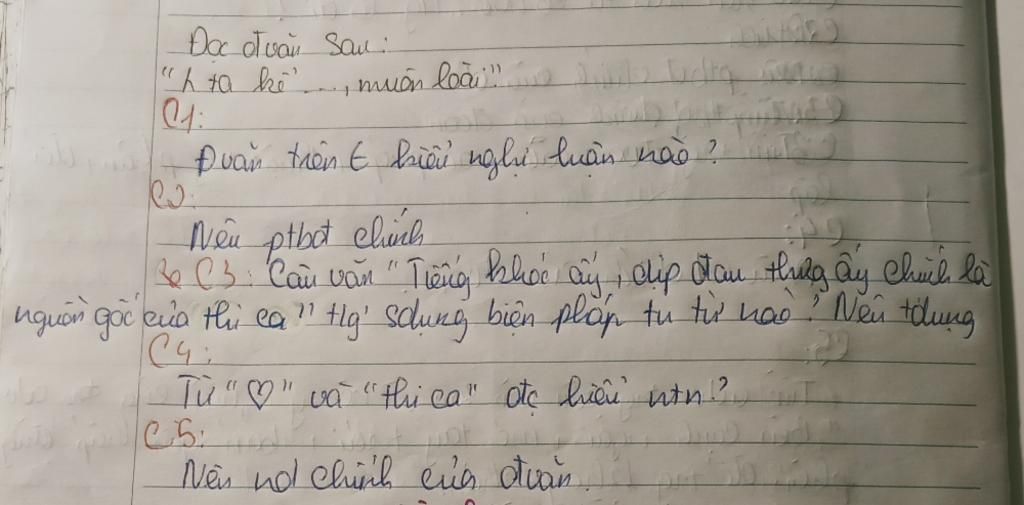 Đọc đvăn sau:
"N ta kể ..., muôn loài"
C1:
Đvăn trên ∈ kiểu nghị luận nào?
C2:
Nêu ptbđ chính
C3: Câu văn "Tiếng khóc ấy, dịp đau thương ấy chính là
nguồn gốc của thi ca" tg' sdụng biện pháp tu từ nào? Nêu tdụng
C4:
Từ "♡" và "thi ca" đc hiểu ntn?
C5:
Nêu nd chính của đvăn.